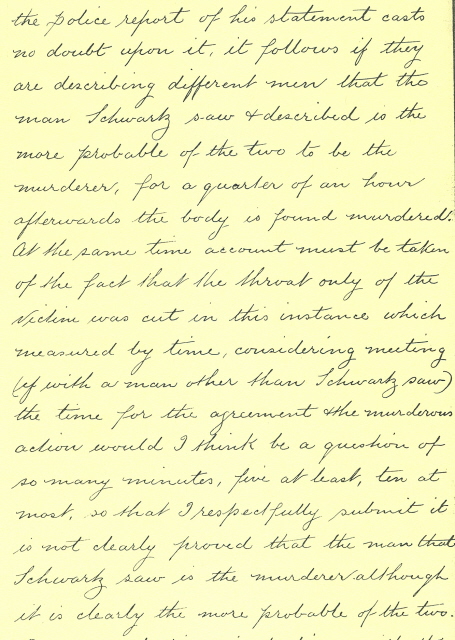 the police report of his statement casts
no doubt upon it, it follows if they
are describing different men that the
man Schwartz saw & described is the
more probable of the two to be the
murderer, for a quarter of an hour
afterwards the body is found murdered.
At the same time account must be taken
of the fact that the throat only of the
victim was cut in this instance which
measured by time, considering meeting
(if with a man other than Schwartz saw)
the time for the agreement & the murderous
action would I think be a question of
so many minutes, five at least, ten at
most, so that I respectfully submit it
is not clearly proved that the man that
Schwartz saw is the murderer although
it is clearly the more probable of the two.